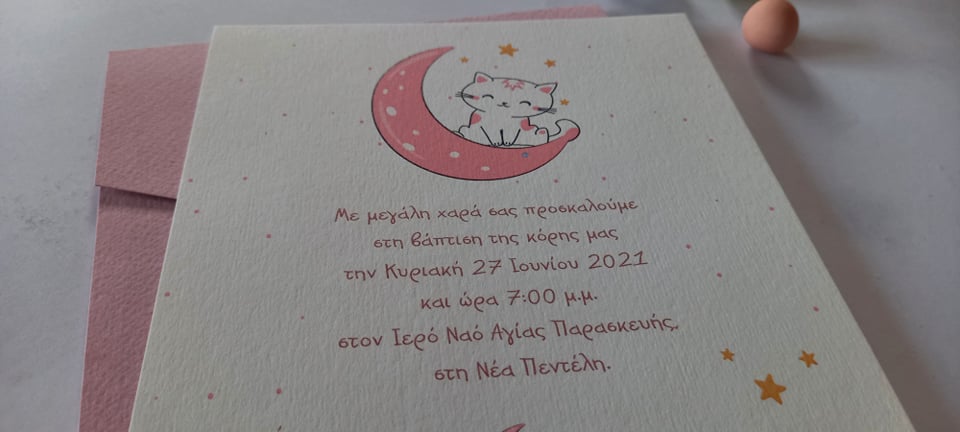 Με μεγάλη χαρά σας προσκαλούμε
στη βάπτιση της κόρης μας
την Κυριακή 27 Ιουνίου 2021
και ώρα 7:00 μ.μ.
στον Ιερό Ναό Αγίας Παρασκευής,
στη Νέα Πεντέλη.